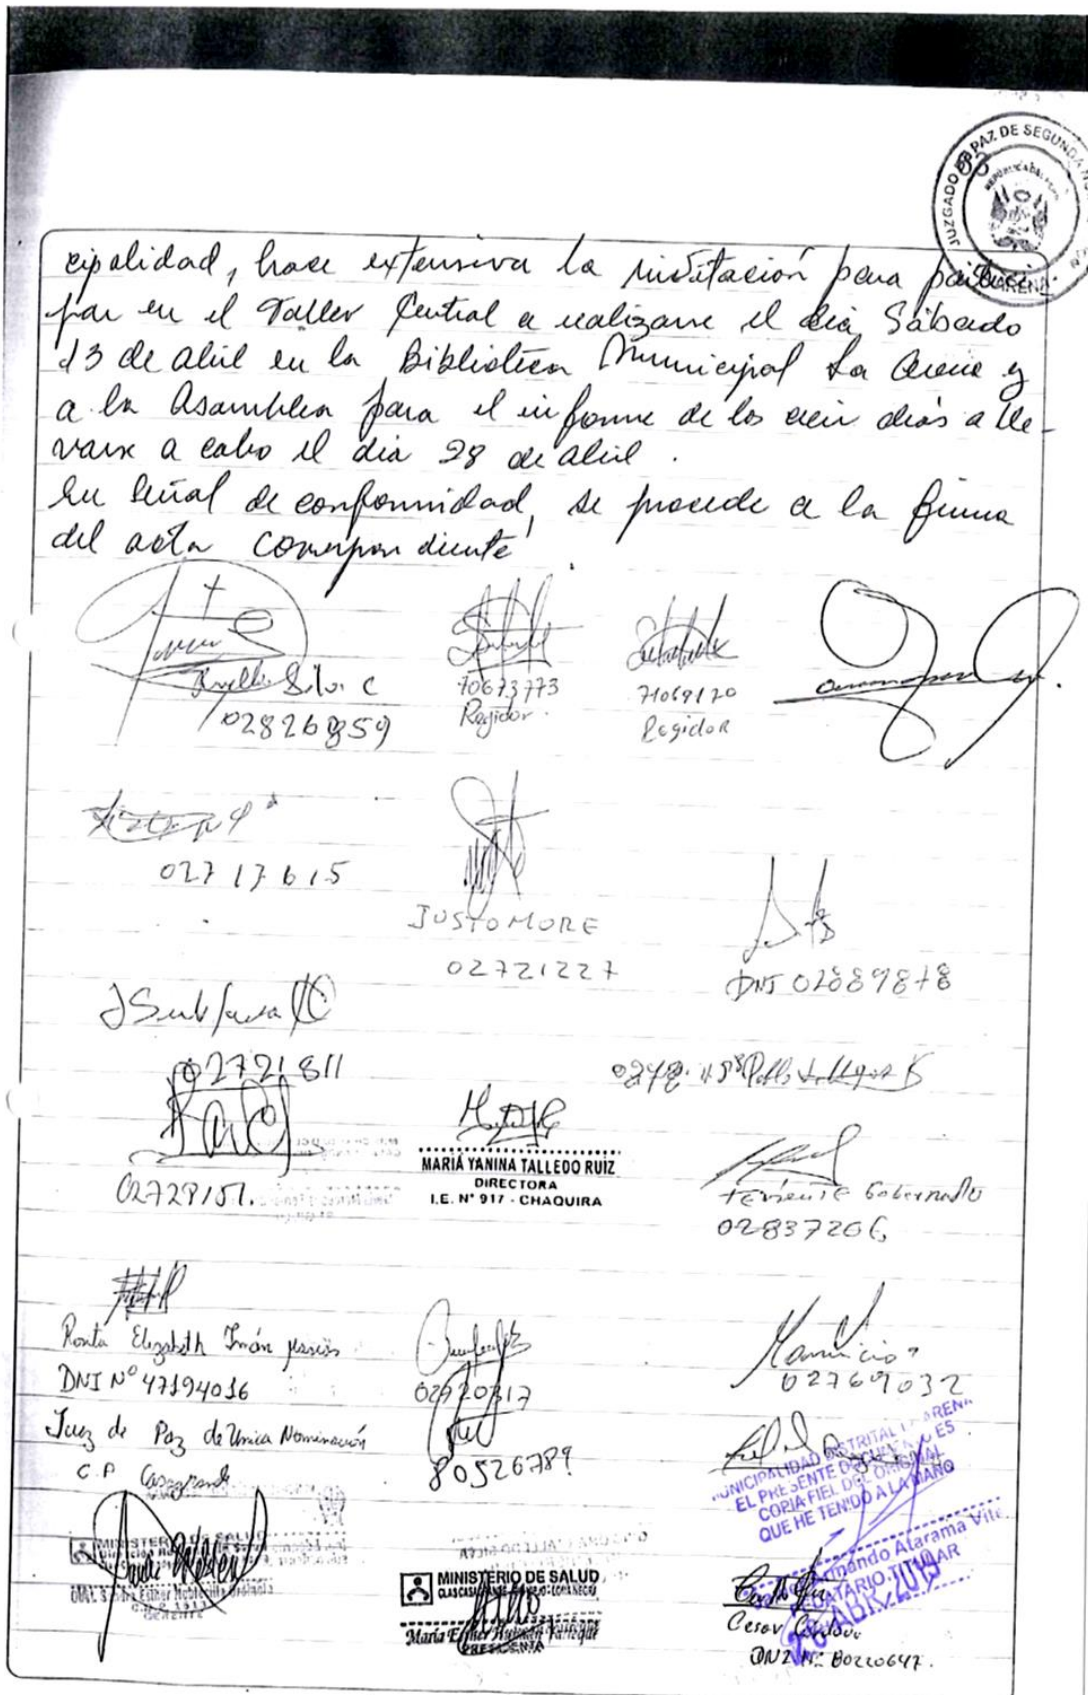 JUZGADO DE PAZ DE SEGUNDA
REPÚBLICA DEL PERÚ
ARENA
cipalidad, hace extensiva la invitación para partici
par en el Taller Central a realizarse el día Sábado
13 de abril en la Biblioteca Municipal La Arena y
a la Asamblea para el informe de los cien días a lle-
varse a cabo el día 28 de abril.
En señal de conformidad, se procede a la firma
del acta correspondiente
Silva C
02826859
70673773
Regidor.
71069170
Regidor
02717615
JUSTO MORE
02721227
DNI 02889878
02721811
02728151.
MARIÁ YANINA TALLEDO RUIZ
DIRECTORA
I.E. N° 917 - CHAQUIRA
Teniente Gobernador
02837206
Elizabeth Imán
DNI N° 47194016
Juez de Paz de Unica Nominación
C.P Casagrande
02720317
80526789
02769032
MUNICIPALIDAD DISTRITAL LA ARENA
EL PRESENTE DOCUMENTO ES
COPIA FIEL DEL ORIGINAL
QUE HE TENIDO A LA MANO
Armando Atarama
FEDATARIO TITULAR
26 ABR. 2019
MINISTERIO DE SALUD
MINISTERIO DE SALUD
María Esther
PRESIDENTA
Cesar Cordova
DNI N° 80220647.